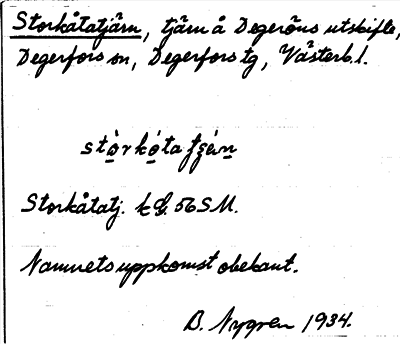 Storkåtatjärn, tjärn å Degeröns utskifte,
Degerfors sn, Degerfors tg, Västerb. l.
Storkåtatj. k G. 56 S M.
Namnets uppkomst obekant.
B. Nygren 1934.